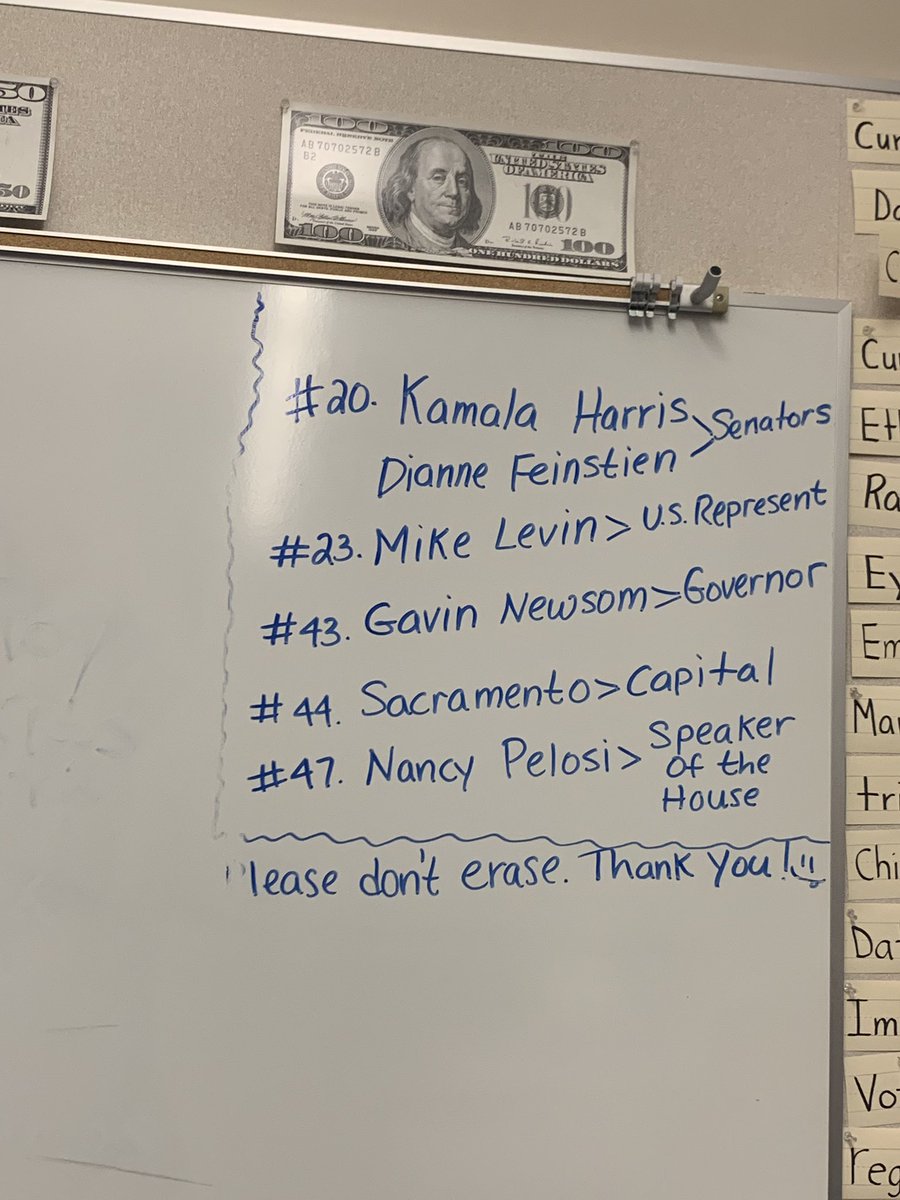 50
50
100
100
FEDERAL RESERVE NOTE
THE
UNITED STATES
OF AMERICA
AB 70702572 B
B2
100
AB 70702572 B
100
100
ONE HUNDRED DOLLARS
#20. Kamala Harris > Senators
Dianne Feinstien
#23. Mike Levin > U.S. Represent
#43. Gavin Newsom > Governor
#44. Sacramento > Capital
#47. Nancy Pelosi > Speaker
of the
House
Please don't erase. Thank you!
Cur
Da
C
Cu
Et
Ra
Ey
Em
Mar
tri
Chi
Dat
Im
Vot
reg